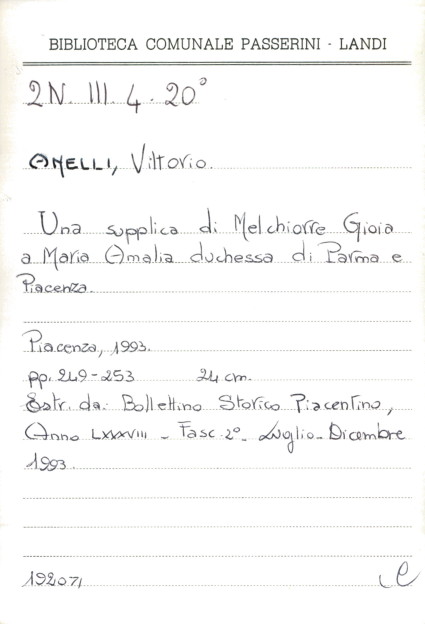 BIBLIOTECA COMUNALE PASSERINI - LANDI
2N. III. 4. 20°
ANELLI, Vittorio.
Una supplica di Melchiorre Gioia
a Maria Amalia duchessa di Parma e
Piacenza.
Piacenza, 1993.
pp. 249-253 24 cm.
Estr. da: Bollettino Storico Piacentino,
Anno LXXXVIII - Fasc. 2° - Luglio-Dicembre
1993.
192071